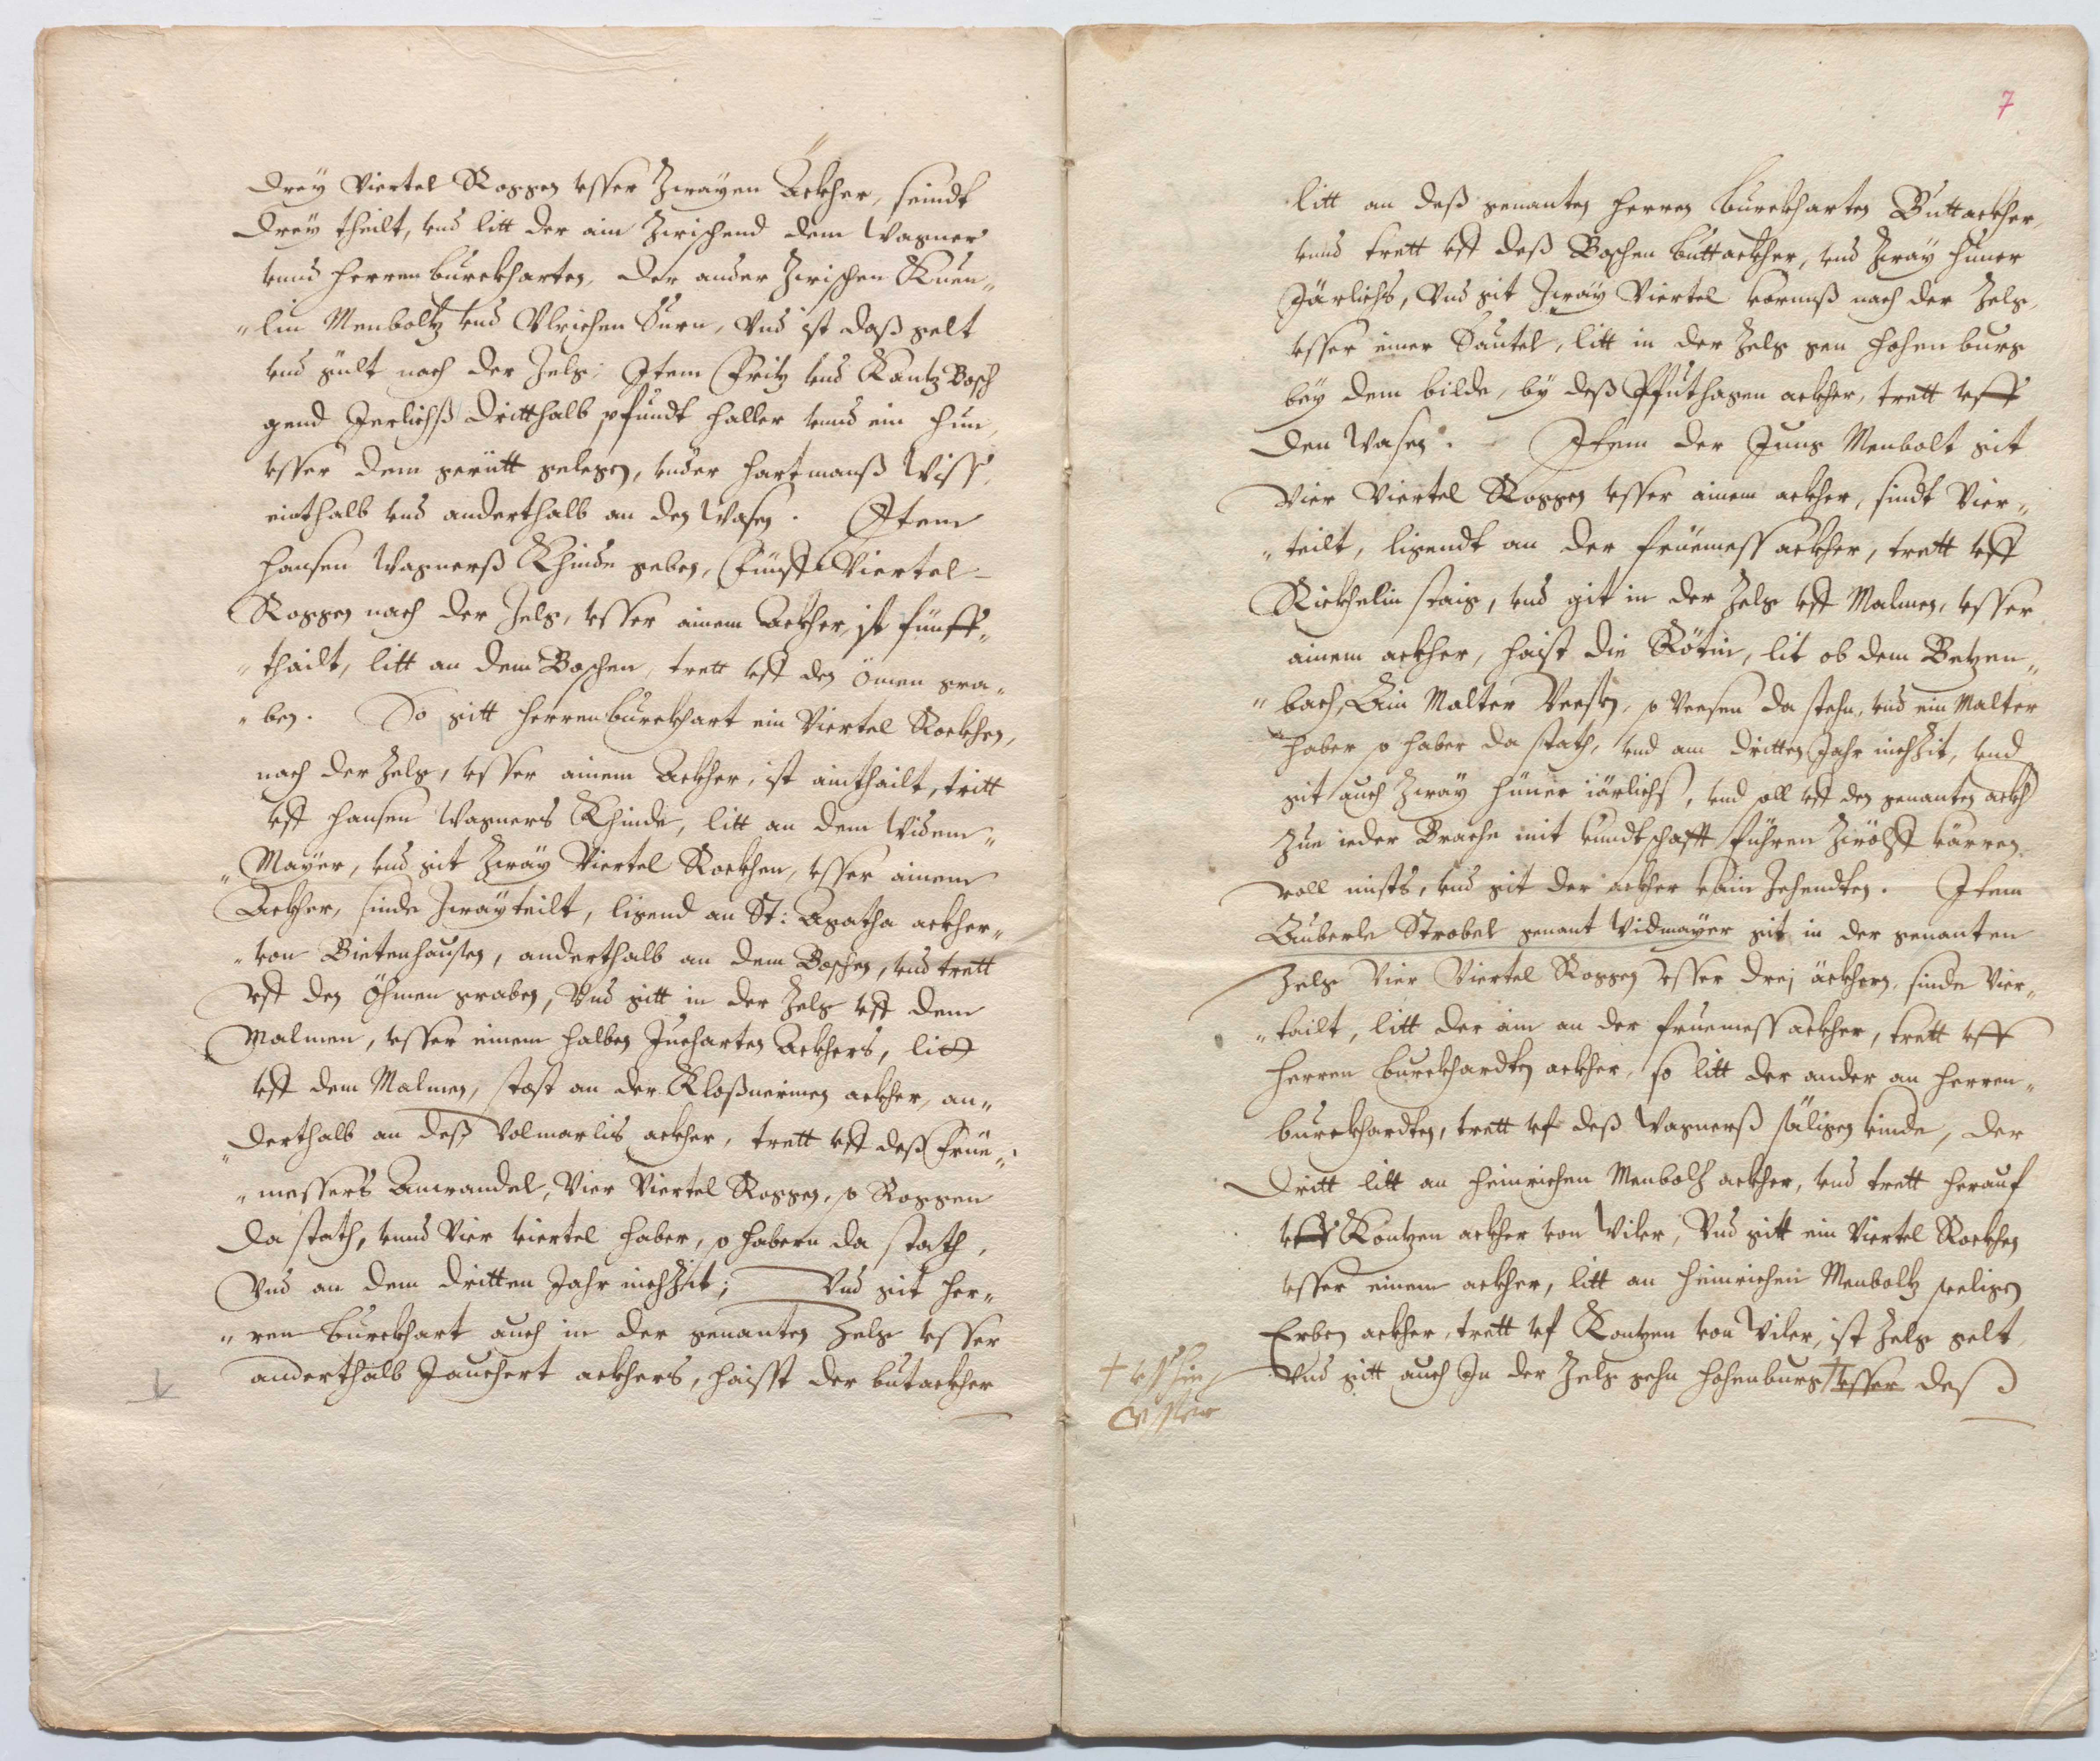 drey Viertel Roggen vsser Zwayen Äckher, seindt
drey theilt, vnd litt der ain Zwischend dem Wagner
vnnd Herren burckharten, der ander Zwischen Kuen„
„lin Menboltz vnd Vlrichen Surn, Vnd ist daß gelt
vnd gült nach der Zelg; Item Fritz vnd Kuntz Bosch
gend Jerlichß dritthalb pfundt haller vnnd ein Hun,
vsser dem gerütt gelegen, vnder Hartmanß Wiss,
einthalb vnd anderthalb an den Wasen. Item
Hansen Wagnerß Khinde geben, Fünff Viertel
Roggen nach der Zelg, vsser ainem Ackher, ist fünff„
„thailt, litt an dem Boschen, trett vff den Ömen gra„
„ben. So gitt Herrenburckhart ein Viertel Rockhen,
nach der Zelg, vsser ainem Ackher, ist ainthailt, tritt
vff Hansen Wagners Khinde, litt an dem Widem„
„Mayer, vnd git Zway Viertel Rockhen, vsser ainem
Ackher, sinde Zwayteilt, ligend an St: Agatha ackher„
„von Bietenhausen, anderthalb an dem Boschen, vnd trett
vff den Öhmen graben, Vnd gitt in der Zelg vff dem
Malmen, vsser einem halben Jucharten Ackhers, litt
vff dem Malmen, stost an der Kloßnerinen ackher, an„
„derthalb an deß Volmarlis ackher, trett vff deß Früe„
„messers Anwandel, Vier Viertel Roggen, so Roggen
da stath, vnnd Vier viertel haber, so habern da stath,
Vnd an dem dritten Jahr nichzit; Vnd git Her„
„ren burckhart auch in der genanten Zelg vsser
anderthalb Jauchert ackhers, haisst der butackher
7
litt an deß genanten Herren burckharten Buttackher,
vnnd trett vff deß Boschen buttackher, vnd Zway Hüner
Järlichs, Vnd git Zway Viertel kornnß nach der Zelg,
vsser einer Hautel, litt in der Zelg gen Hohenburg
bey dem bilde, by deß Pfuthagen ackher, trett vff
den Wasen. Item der Jung Menbolt git
Vier Viertel Roggen vsser ainem ackher, sindt Vier„
„teilt, ligendt an der früemess ackher, trett vff
Rickhelin staig, vnd git in der Zelg vff Malmen, vsser
ainem ackher, haist die Rötin, lit ob dem Betzen„
„bach, Ain Malter Veesen, so Veesen da stehn, vnd ein Malter
haber so haber da stath, vnd am dritten Jahr nichzit, vnd
git auch Zway hüner järlichs, vnd soll vff den genanten ackh
zue ieder Brache mit kundtschafft führen Zwölff kärren
voll mists, vnd git der ackher kain Zehendten. Item
Auberle Strobel genant Widmayer git in der genanten
Zelg Vier Viertel Roggen vsser drej äckhern, sinde Vier„
„tailt, litt der ain an der fruemess ackher, trett vff
Herren burckhardten ackher, so litt der ander an Herren„
burckhardten, trett vf deß Wagnerß säligen kinde, der
dritt litt an Heinrichen Menboltz ackher, vnd trett herauf
vff Kontzen ackher von Wiler, Vnd gitt ein Viertel Rockhen
vsser einem ackher, litt an Heinrichen Menboltz seeligen
Erben ackher, trett vf Kontzen von Wiler, ist Zelg gelt,
Vnd gitt auch In der Zelg gehn Hohenburg + vsser deß
+ vsshin
vsser